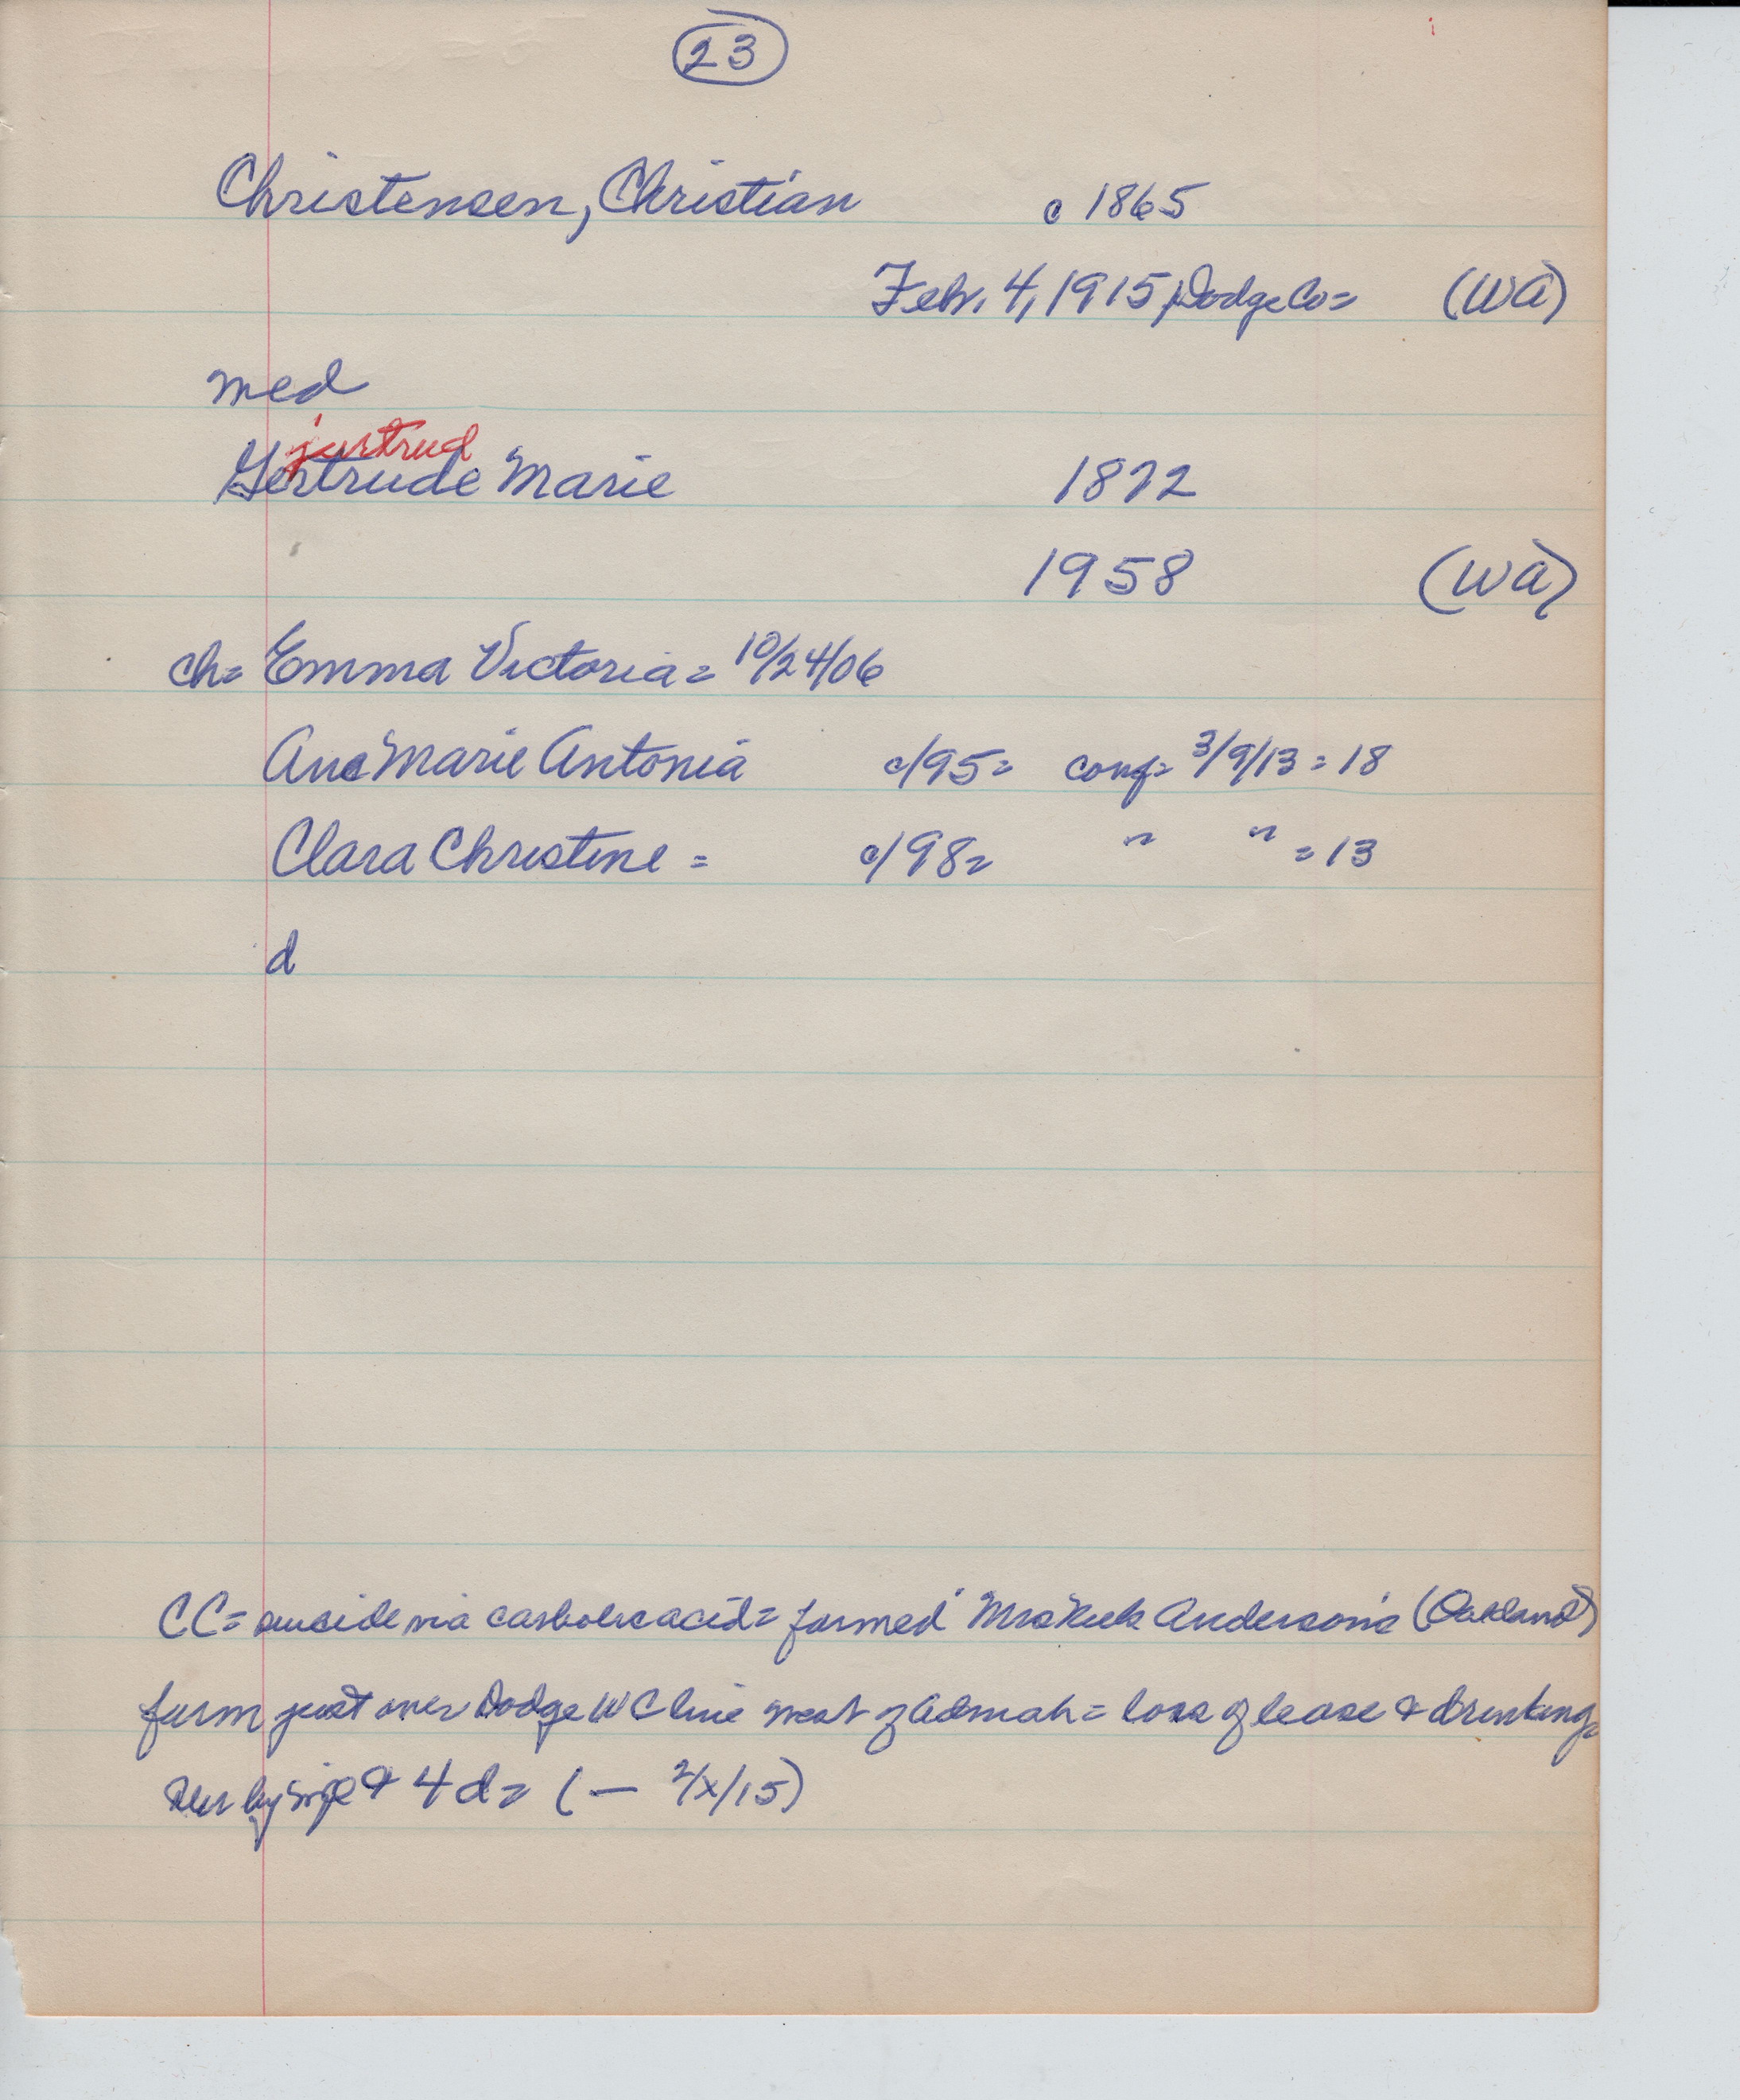 23
Christensen, Christian c 1865
Feb. 4, 1915, Dodge Co = (WA)
med
jertrud
Gertrude Marie 1872
1958 (WA)
ch = Emma Victoria = 10/24/06
Ane Marie Antonia c/95 = conf = 3/9/13 = 18
Clara Christine = c/98 = " " = 13
d
CC = suicide via carbolic acid = farmed Mrs Anderson's (Oakland)
farm just over Dodge WC line west of Admah = loss of lease & drinking =
sur by wife & 4 d = ( — 2/x/15)